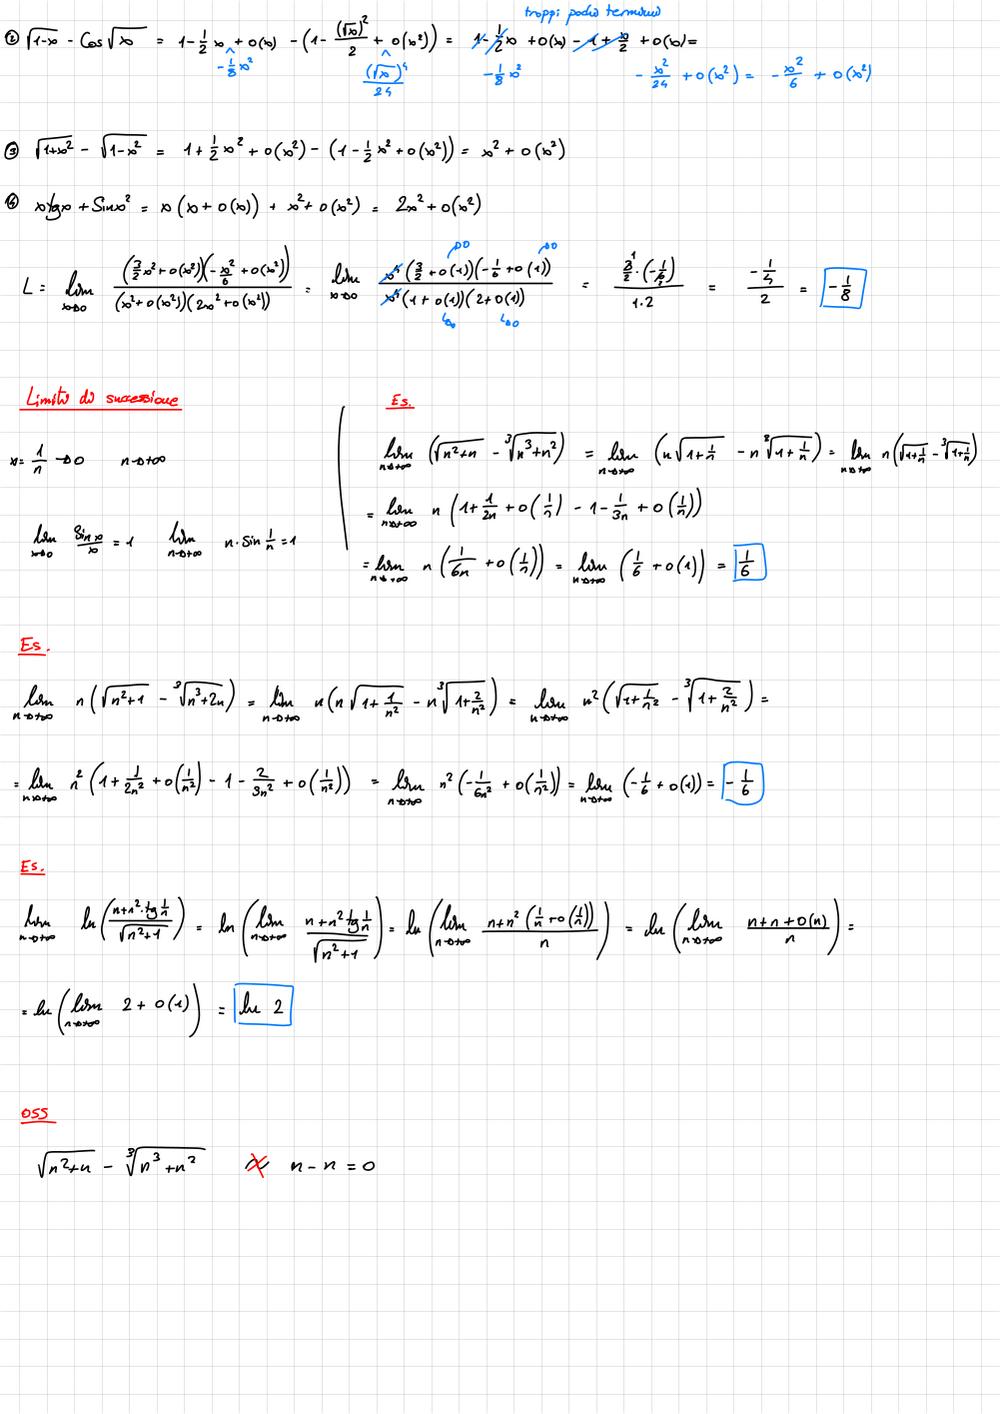 troppi pochi termini
② √(1-x) - Cos √x = 1 - 1/2 x + o(x) - (1 - (√x)²/2 + o(x²)) = 1 - 1/2 x + o(x) - 1 + x/2 + o(x) =
- 1/8 x² (√x)⁴/24 - 1/8 x² - x²/24 + o(x²) = - x²/6 + o(x²)
③ √(1+x²) - √(1-x²) = 1 + 1/2 x² + o(x²) - (1 - 1/2 x² + o(x²)) = x² + o(x²)
④ x tg x + Sin x² = x (x + o(x)) + x² + o(x²) = 2x² + o(x²)
L = lim x→0 (3/2 x² + o(x²))(- x²/6 + o(x²)) / (x² + o(x²))(2x² + o(x²)) = lim x→0 x⁴ (3/2 + o(1))(- 1/6 + o(1)) / x⁴ (1 + o(1))(2 + o(1)) = 3/2 · (- 1/6) / 1·2 = - 1/4 / 2 = - 1/8
→0 →0
→0 →0
Limiti di successione
x = 1/n → 0 n → +∞
lim x→0 Sin x / x = 1 lim n→+∞ n · Sin 1/n = 1
Es.
lim n→+∞ (√(n²+n) - ³√(n³+n²)) = lim n→+∞ (n √(1+1/n) - n ³√(1+1/n)) = lim n→+∞ n (√(1+1/n) - ³√(1+1/n))
= lim n→+∞ n (1 + 1/2n + o(1/n) - 1 - 1/3n + o(1/n))
= lim n→+∞ n (1/6n + o(1/n)) = lim n→+∞ (1/6 + o(1)) = 1/6
Es.
lim n→+∞ n (√(n²+1) - ³√(n³+2n)) = lim n→+∞ n (n √(1+1/n²) - n ³√(1+2/n²)) = lim n→+∞ n² (√(1+1/n²) - ³√(1+2/n²)) =
= lim n→+∞ n² (1 + 1/2n² + o(1/n²) - 1 - 2/3n² + o(1/n²)) = lim n→+∞ n² (- 1/6n² + o(1/n²)) = lim n→+∞ (- 1/6 + o(1)) = - 1/6
Es.
lim n→+∞ ln (n+n²·tg 1/n / √(n²+1)) = ln (lim n→+∞ n+n² tg 1/n / √(n²+1)) = ln (lim n→+∞ n+n² (1/n + o(1/n)) / n) = ln (lim n→+∞ n+n+o(n) / n) =
= ln (lim n→+∞ 2 + o(1)) = ln 2
OSS
√(n²+n) - ³√(n³+n²) ≁ n - n = 0